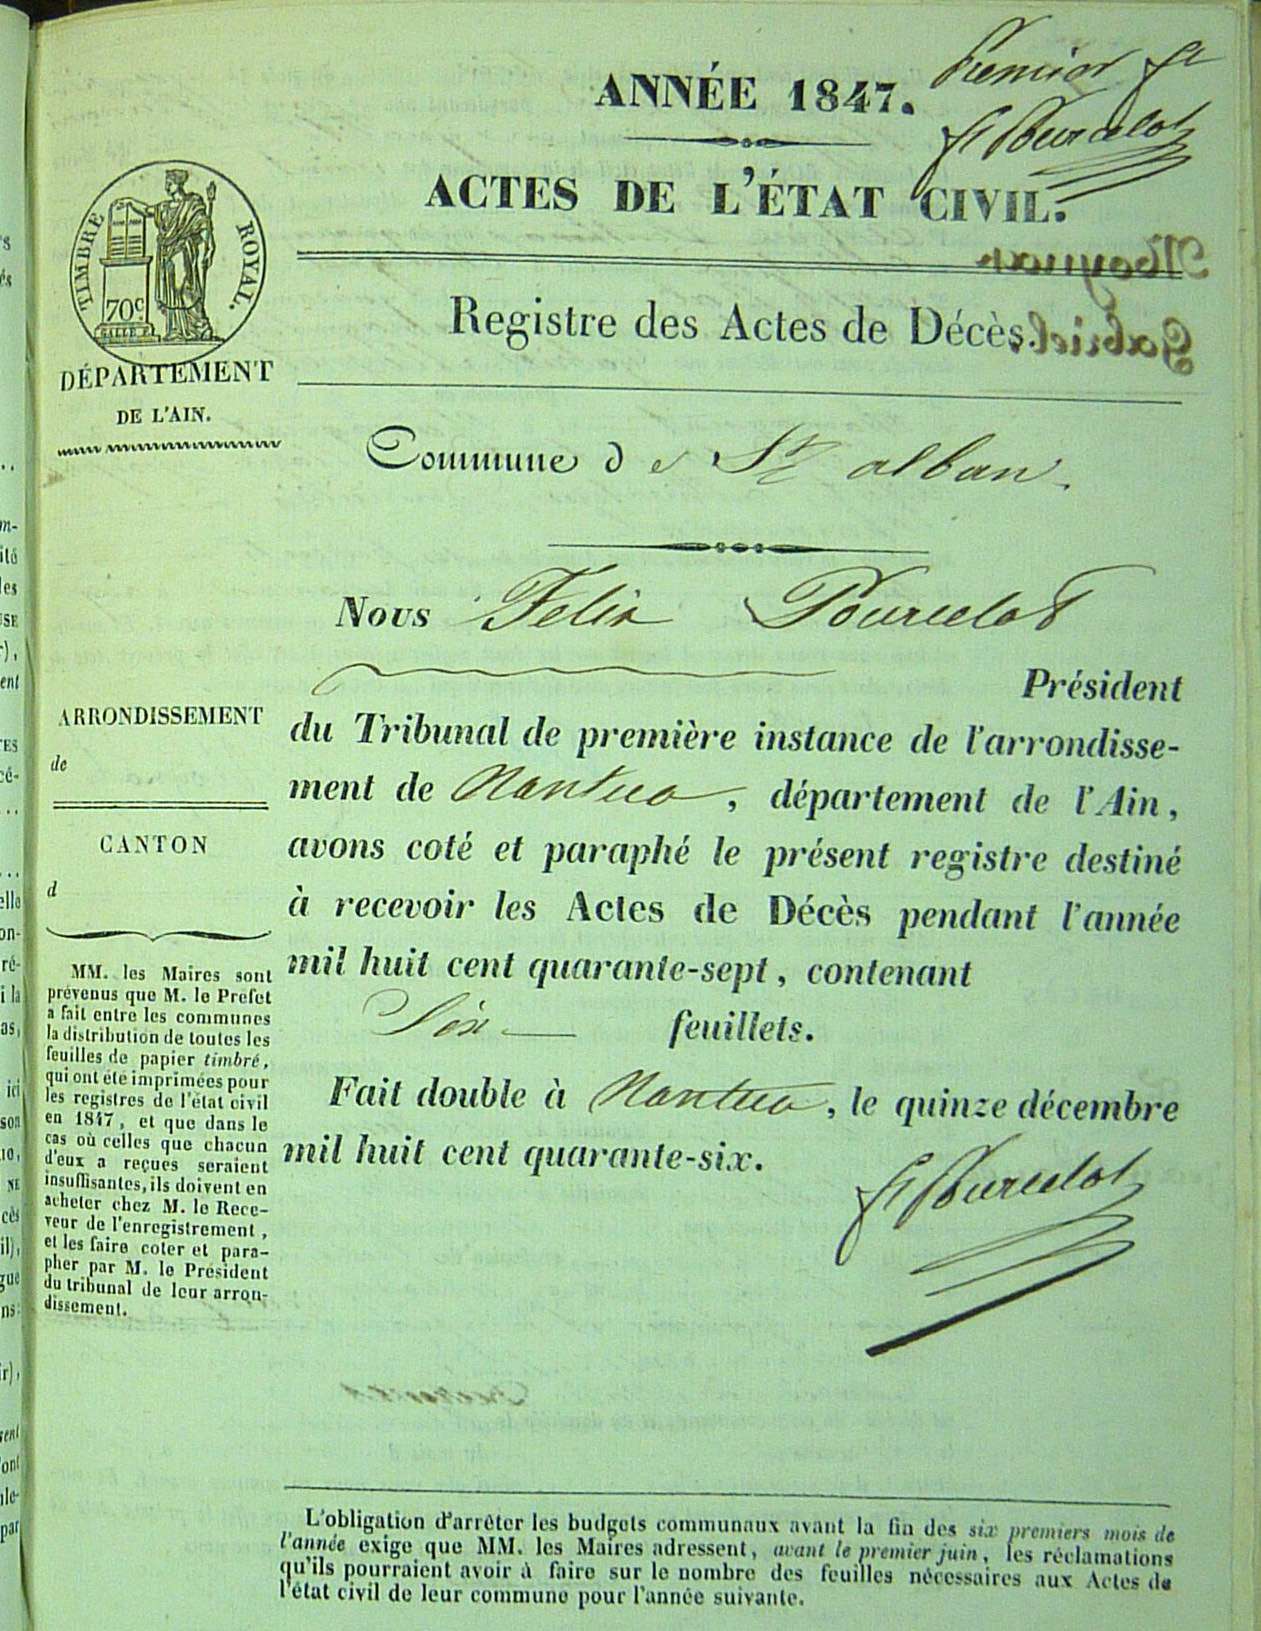 Premier ft
F Pourcelot
ANNÉE 1847.
ACTES DE L'ÉTAT CIVIL.
TIMBRE ROYAL.
70c
DÉPARTEMENT
DE L'AIN.
Registre des Actes de Décès.
Commune de St alban.
Nous Felix Pourcelot
Président
du Tribunal de première instance de l'arrondisse-
ment de Nantua, département de l'Ain,
avons coté et paraphé le présent registre destiné
à recevoir les Actes de Décès pendant l'année
mil huit cent quarante-sept, contenant
Six feuillets.
Fait double à Nantua, le quinze décembre
mil huit cent quarante-six.
F Pourcelot
ARRONDISSEMENT
de
CANTON
d
MM. les Maires sont
prévenus que M. le Préfet
a fait entre les communes
la distribution de toutes les
feuilles de papier timbré,
qui ont été imprimées pour
les registres de l'état civil
en 1847, et que dans le
cas où celles que chacun
d'eux a reçues seraient
insuffisantes, ils doivent en
acheter chez M. le Rece-
veur de l'enregistrement,
et les faire coter et para-
pher par M. le Président
du tribunal de leur arron-
dissement.
L'obligation d'arrêter les budgets communaux avant la fin des six premiers mois de
l'année exige que MM. les Maires adressent, avant le premier juin, les réclamations
qu'ils pourraient avoir à faire sur le nombre des feuilles nécessaires aux Actes de
l'état civil de leur commune pour l'année suivante.